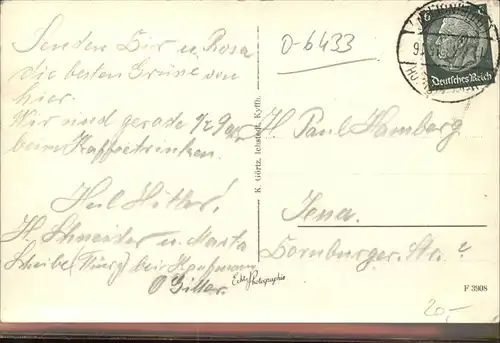 Senden Dir u. Rosa
die besten Grüße von
hier.
Wir sind gerade 1/2 9
beim Kaffeetrinken.
Heil Hitler!
H. Schneider u. Marta
Scheibe (Thürg) bei
O-6433
K. Görtz, Ichstedt, Kyffh.
Echte Photographie
Deutsches Reich
H Paul Hamberg
Jena.
Dornburger Str.
F 3908
20,-